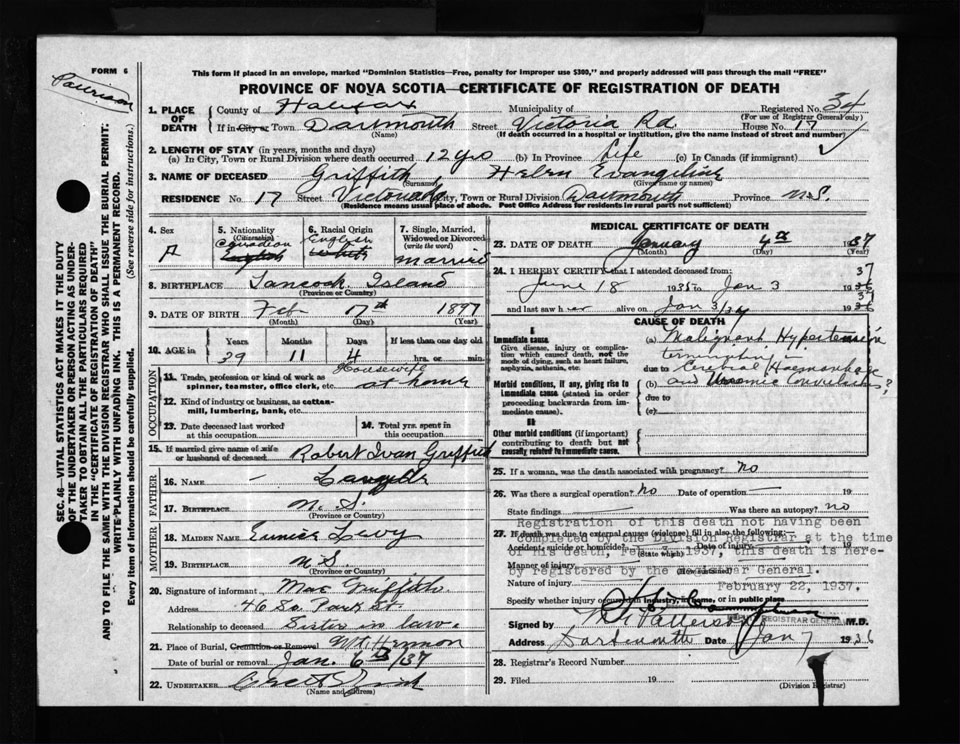 FORM 6
This form if placed in an envelope, marked "Dominion Statistics—Free, penalty for improper use $300," and properly addressed will pass through the mail "FREE"
PROVINCE OF NOVA SCOTIA—CERTIFICATE OF REGISTRATION OF DEATH
SEC. 46—VITAL STATISTICS ACT MAKES IT THE DUTY
OF THE UNDERTAKER OR PERSON ACTING AS UNDER-
TAKER TO OBTAIN ALL THE PARTICULARS REQUIRED
IN THE "CERTIFICATE OF REGISTRATION OF DEATH"
AND TO FILE THE SAME WITH THE DIVISION REGISTRAR WHO SHALL ISSUE THE BURIAL PERMIT.
WRITE PLAINLY WITH UNFADING INK. THIS IS A PERMANENT RECORD.
Every item of information should be carefully supplied. (See reverse side for instructions.)
1. PLACE OF DEATH County of Halifax Municipality of Registered No. 34
(For use of Registrar General only)
If in City or Town Dartmouth Street Victoria Rd. House No. 17
(Name) (If death occurred in a hospital or institution, give the name instead of street and number)
2. LENGTH OF STAY (in years, months and days)
(a) In City, Town or Rural Division where death occurred 12 yrs (b) In Province Life (c) In Canada (if immigrant)
3. NAME OF DECEASED Griffith Helen Evangeline
(Surname) (Given name or names)
RESIDENCE No 17 Street Victoria Rd City, Town or Rural Division Dartmouth Province N.S.
(Residence means usual place of abode. Post Office Address for residents in rural parts not sufficient)
4. Sex 5. Nationality (Citizenship) 6. Racial Origin 7. Single, Married, Widowed or Divorced (write the word)
F Canadian English English White married
8. BIRTHPLACE Tancook Island
(Province or Country)
9. DATE OF BIRTH Feb 17th 1897
(Month) (Day) (Year)
10. AGE in Years Months Days If less than one day old
39 11 4 hrs. or min.
OCCUPATION
11. Trade, profession or kind of work as spinner, teamster, office clerk, etc. Housewife at home
12. Kind of industry or business, as cotton-mill, lumbering, bank, etc.
13. Date deceased last worked at this occupation 14. Total yrs. spent in this occupation
15. If married give name of wife or husband of deceased Robert Ivan Griffith
FATHER
16. NAME — Langille
17. BIRTHPLACE N.S.
(Province or Country)
MOTHER
18. MAIDEN NAME Eunice Levy
19. BIRTHPLACE N.S.
(Province or Country)
20. Signature of informant Mae Griffith.
Address 46 So. Park St.
Relationship to deceased Sister in law.
21. Place of Burial, Cremation or Removal Mt Hermon
Date of burial or removal Jan. 6th/37
22. UNDERTAKER
(Name and address)
MEDICAL CERTIFICATE OF DEATH
23. DATE OF DEATH January 4th 1937
(Month) (Day) (Year)
24. I HEREBY CERTIFY that I attended deceased from:
June 18 1935 to Jan 3 1936 37
and last saw her alive on Jan 3/37 1936 37
CAUSE OF DEATH
I
Immediate cause
Give disease, injury or complication which caused death, not the mode of dying, such as heart failure, asphyxia, asthenia, etc.
(a) Malignant Hypertension
terminating in
Cerebral Haemorrhage
Morbid conditions, if any, giving rise to immediate cause (stated in order proceeding backwards from immediate cause).
(b) and Uraemic Convulsions?
due to
(c)
II
Other morbid conditions (if important) contributing to death but not causally related to immediate cause.
25. If a woman, was the death associated with pregnancy? no
26. Was there a surgical operation? no Date of operation — 19
State findings — Was there an autopsy? no
27. If death was due to external causes (violence) fill in also the following:
Accident, suicide or homicide? Date of injury 19
(State which)
Manner of injury
Nature of injury
Specify whether injury occurred in industry, in home, or in public place
Registration of this death not having been
completed by the Division Registrar at the time
of his death, Feb. 3, 1937, this death is here-
by registered by the Registrar General.
February 22, 1937.
REGISTRAR GENERAL
Signed by Patterson M.D.
Address Dartmouth Date Jan 7 1936
28. Registrar's Record Number
29. Filed 19
(Division Registrar)